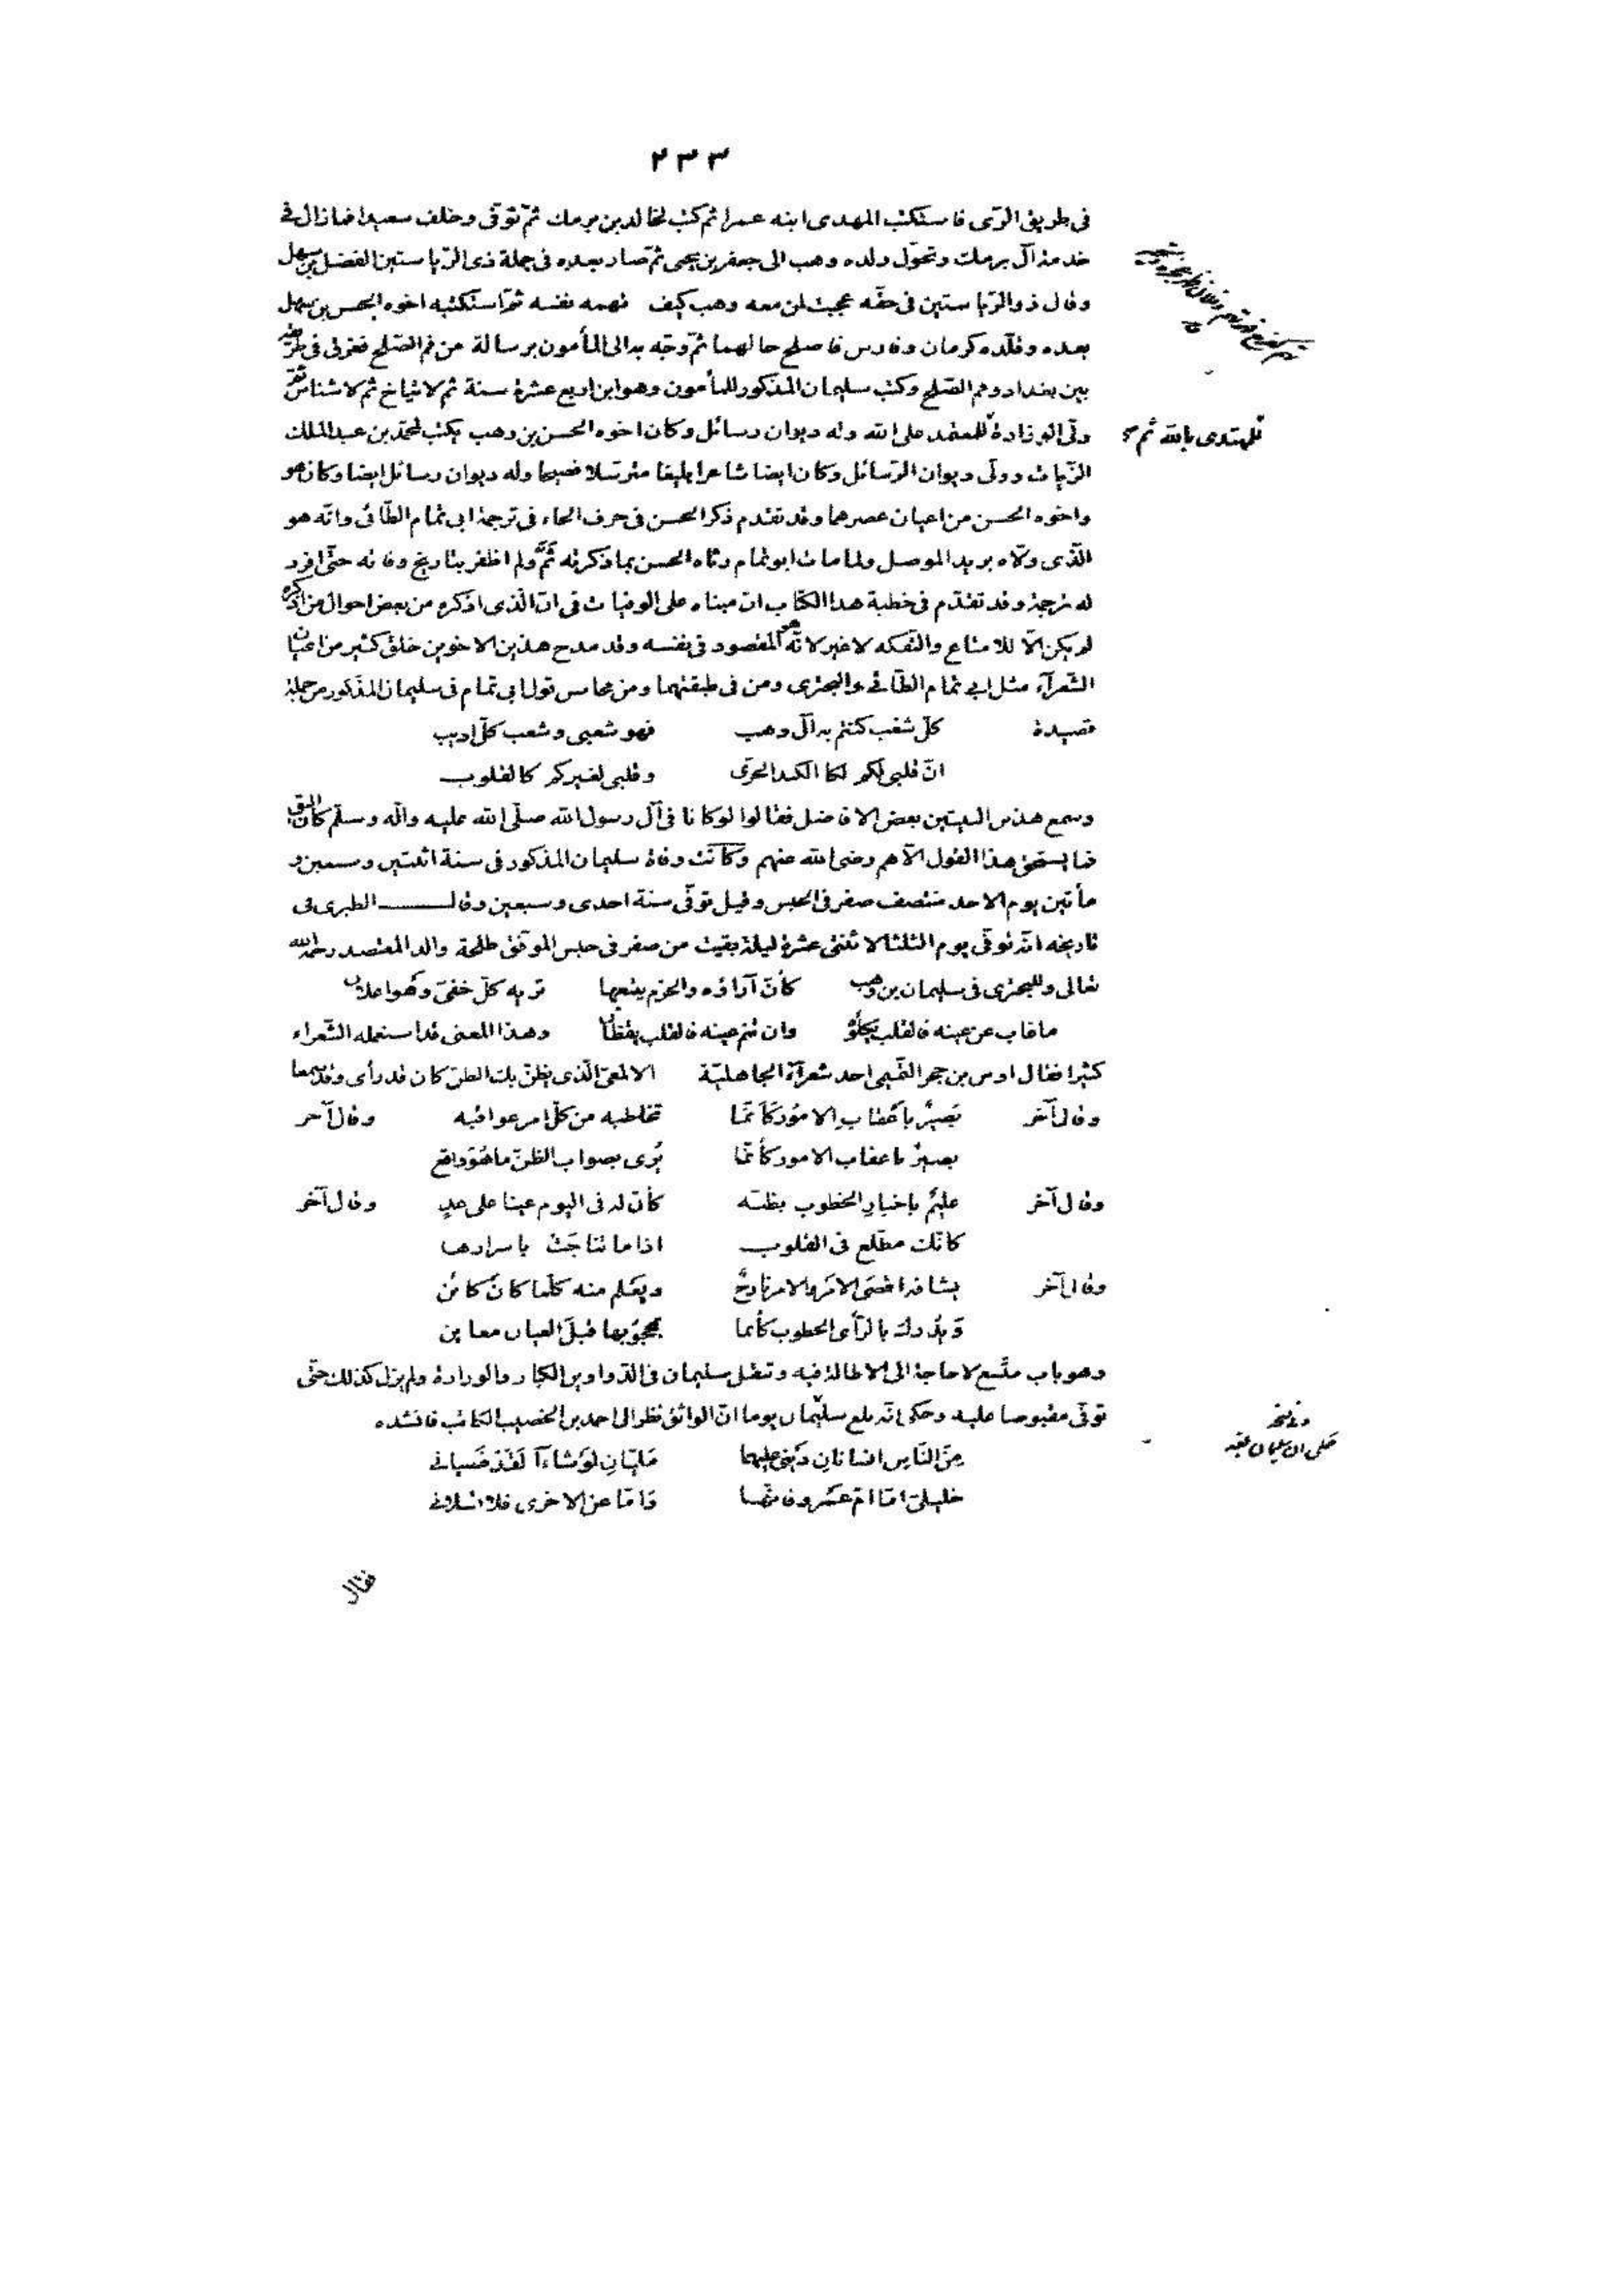 ٢٣٣
فى طريق الرّى فاستكتب المهدى ابنه عمرا ثم كتب لخالد بن برمك ثمّ توفّى وخلف سعيدا فما زال فى
خدمة آل برمك وتحوّل ولده وهب الى جعفر بن يحيى ثمّ صار بعده فى جملة ذى الرّياستين الفضل بن سهل
وقال ذو الرّياستين فى حقّه عجبت لمن معه وهب كيف تهمه نفسه ثمّ استكتبه اخوه الحسن بن سهل
بعده وقلّده كرمان وفارس فاصلح حالهما ثمّ وجّه به الى المأمون برسالة من فم الصّلح فغرق فى طريقه
بين بغداد وفم الصّلح وكتب سليمان المذكور للمأمون وهو ابن اربع عشرة سنة ثم لايتاخ ثم لاشناس ثمّ
ولّى الوزارة للمعتمد على الله وله ديوان رسائل وكان اخوه الحسن بن وهب يكتب لمحمّد بن عبد الملك
للمهتدى بالله ثم
الزّيات وولّى ديوان الرّسائل وكان ايضا شاعرا بليغا مترسّلا فصيحا وله ديوان رسائل ايضا وكان هو
واخوه الحسن من اعيان عصرهما وقد تقدم ذكر الحسن فى حرف الحاء فى ترجمة ابى تمام الطّائى وانّه هو
الّذى ولّاه بريد الموصل ولما مات ابو تمام رثاه الحسن بما ذكرته ثَمَّ ولم اظفر بتاريخ وفاته حتّى افرد
له ترجمة وقد تقدّم فى خطبة هذا الكتاب ان مبناه على الوفيات فى انّ الّذى اذكره من بعض احوال من اذكره
لم يكن الّا للامتاع والتّفكه لا غير لانّه هو المقصود فى نفسه وقد مدح هذين الاخوين خلق كثير من اعيان
الشّعرآء مثل ابى تمام الطّائى والبحترى ومن فى طبقتهما ومن محاسن قول ابى تمام فى سليمان المذكور من جملة
قصيدة كلّ شعب كنتم به آل وهب فهو شعبى وشعب كلّ اديب
انّ قلبى لكم لكا الكبد الحرّى وقلبى لغيركم كالقلوب
وسمع هذين البيتين بعض الافاضل فقالوا لو كانا فى آل رسول الله صلّى الله عليه واله وسلّم كان اليق
فما يستحق هذا القول الّا هم رضى الله عنهم وكانت وفاة سليمان المذكور فى سنة اثنتين وسبعين و
مأتين يوم الاحد منتصف صفر فى الحبس وقيل توفّى سنة احدى وسبعين وقال الطبرى فى
تاريخه انّه توفّى يوم الثلثا لاثنتى عشرة ليلة بقيت من صفر فى حبس الموفّق طلحة والد المعتضد رحمه الله
تعالى وللبحترى فى سليمان بن وهب كأنّ آراؤه والحزم يتبعها تريه كلّ خفىّ وهو اعلان
ما غاب عن عينه فالقلب يكلؤه وان تنم عينه فالقلب يقظان وهذا المعنى قد استعمله الشّعراء
كثيرا فقال اوس بن حجر التّميمى احد شعرآء الجاهليّة الالمعىّ الّذى يظنّ بك الظنّ كان قد رأى وقد سمعا
وقال آخر بَصيرٌ بأعْقابِ الامُور كَأنّما تخاطبه من كلّ امر عواقبه وقال آخر
بصيرٌ باعقاب الامور كأنّما يُرى بصواب الظنّ ما هُوَ واقع
وقال آخر عليمٌ باخبارِ الخطوب بظنّه كأنّ له فى اليوم عينا على غدٍ وقال آخر
كانّك مطّلع فى القلوب اذا ما تناجَتْ باسرارها
وقال آخر ويعلم منه كلّما كانَ كائن
وهو باب متّسع لا حاجة الى الاطالة فيه وتنقل سليمان فى الدّواوين الكبار والوزارة ولم يزل كذلك حتّى
توفّى مقبوضا عليه وحكى انّه بلغ سليمان يوما انّ الواثق نظر الى احمد بن الخصيب الكاتب فانشده
مِنَ النّاسِ انسانانِ دَينى عليهما مَليّانِ لوْ شاءآ لقَدْ قضيانى
خليلىّ امّا امّ عَمْرو فمنهما وَامّا عن الاخرى فلا تسلانى
فقال